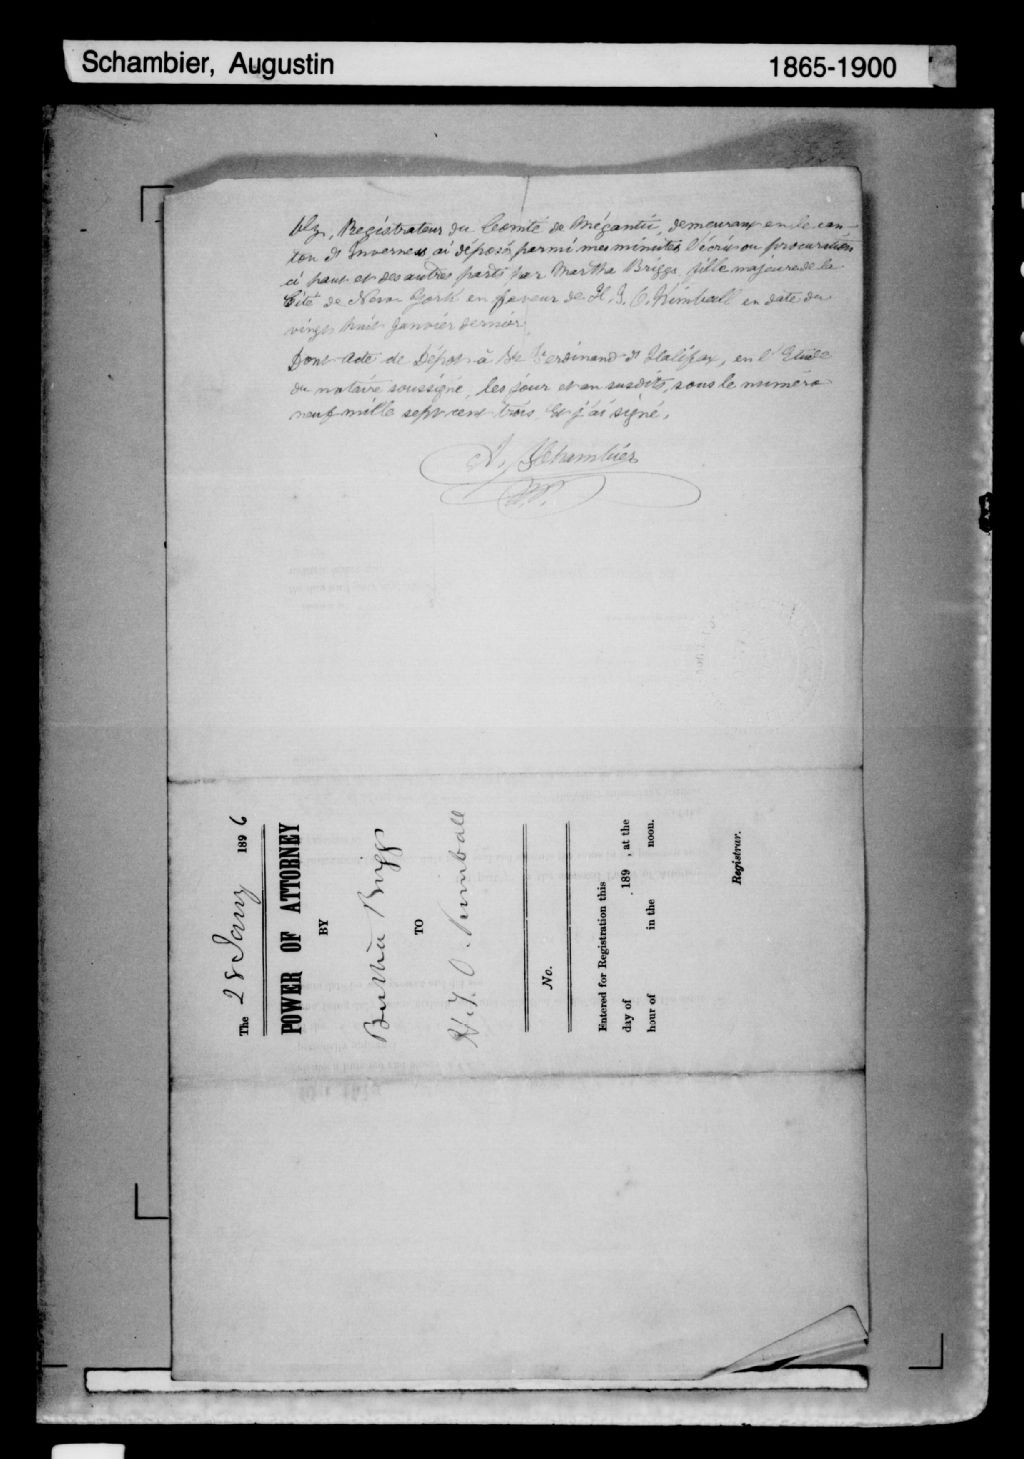 Schambier, Augustin
1865-1900
Registrateur du Comté de Mégantic, demeurant en le can-
ton d'Inverness ai déposé parmi mes minutes l'écrit ou procuration
ci haut et des autres parts par Martha Briggs, fille majeure de la
Cité de New York en faveur de H. J. O. Kimball en date du
vingt huit Janvier dernier.
Dont Acte de Dépôt à St Ferdinand d'Halifax, en l'Etude
du notaire soussigné, les jour et an susdits, sous le numéro
neuf mille sept cent trois. Et j'ai signé.
A. Schambier
N.P.
The 28 Jany 1896
POWER OF ATTORNEY
BY
Briggs
TO
H. J. O. Kimball
No.
Entered for Registration this
day of 189 , at the
hour of in the noon.
Registrar.